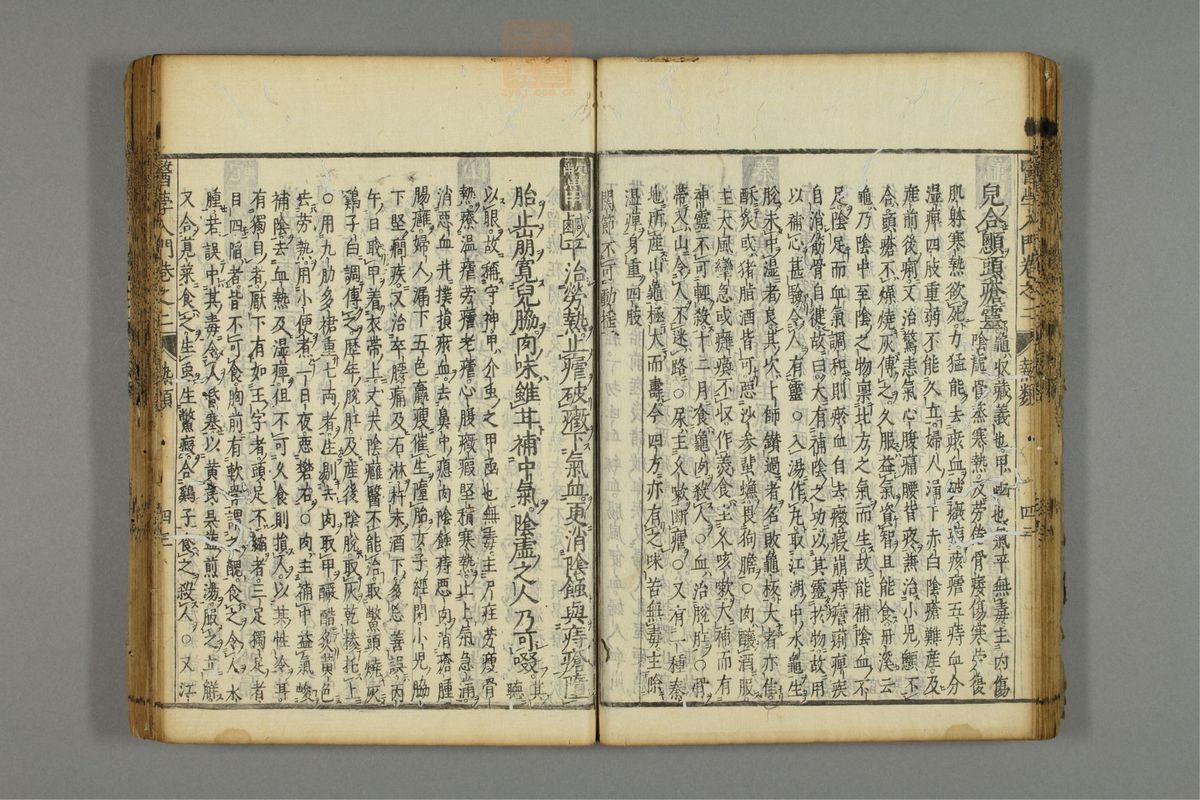 兒合顖頭瘡塞龜收藏義也甲也氣平無毒主內傷
陰虛骨蒸寒熱及勞倦骨痿傷寒勞復
肌躰寒熱欲死力猛能去瘀血破癥瘕痎瘧五痔血分
濕痺四肢重弱不能久立婦人漏下赤白陰瘡難產及
產前後痢又治驚恚氣心腹痛腰背疼兼治小兒顖不
合頭瘡不燥燒灰傳之久服益氣資智且能食丹溪云
龜乃陰中至陰之物稟北方之氣而生故能補陰血不
足陰足而血氣調和則瘀血自去癥瘕崩痔瘧痢痺疾
自消筋骨自健故曰大有補陰之功以其靈於物故用
以補心甚驗令人有靈○入湯作丸取江湖中水龜生
脫未中濕者良其次卜師鑽過者名敗龜極大者亦佳
酥炙或猪脂酒皆可惡沙參蜚蠊畏狗膽○肉釀酒服
主大風攣急或癱瘓不收作羹食主久咳嗽大補而有
神靈不可輕殺十二月食龜肉殺人○血治脫肛○骨
帶入山令人不迷路○尿主久嗽斷瘧○又有一種秦
地所產山龜極大而壽今四方亦有之味苦無毒主除
濕痺身重四肢
關節不可動搖
鱉甲鹹平治勞熱止瘧破癥下氣血更消陰蝕與痔瘡墮
胎止崩實兒脇肉味雖甘補中氣陰虛之人乃可啜鱉其聽
以眼故稱守神甲介虫之甲也無毒主尸疰勞瘦骨
熱療溫瘧去瘧老瘧心腹癥瘕堅積寒熱止上氣急滿
消惡血并撲損瘀血去鼻中瘜肉陰蝕痔惡肉消瘡腫
腸癰婦人漏下五色羸瘦催生墮胎女子經閉小兒脇
下堅癇疾又治卒腰痛及石淋杵末酒下多忘善誤丙
午日取甲着衣帶上丈夫陰癰醫不能治取鱉頭燒灰
鷄子白調傳之歷年脫肛及產後陰脫取灰乾摻托上
○用九肋多裙重七兩者生剔去肉取甲釅醋炙黃色
去勞熱用小便煮一日夜惡礬石○肉主補中益氣峻
補陰去血熱及濕痺但不可久食則損人以其性冷耳
有獨目者厭下有如王字者頭足不縮者三足獨足者
目四陷者皆不可食胸前有軟骨謂之醜食之令人水
腫若誤中其毒令人昏塞以黃芪吳藍煎湯服之立解
又合莧菜食之生虫生鱉癥合鷄子食之殺人○又浮
醫學入門卷之二 熱類 四三